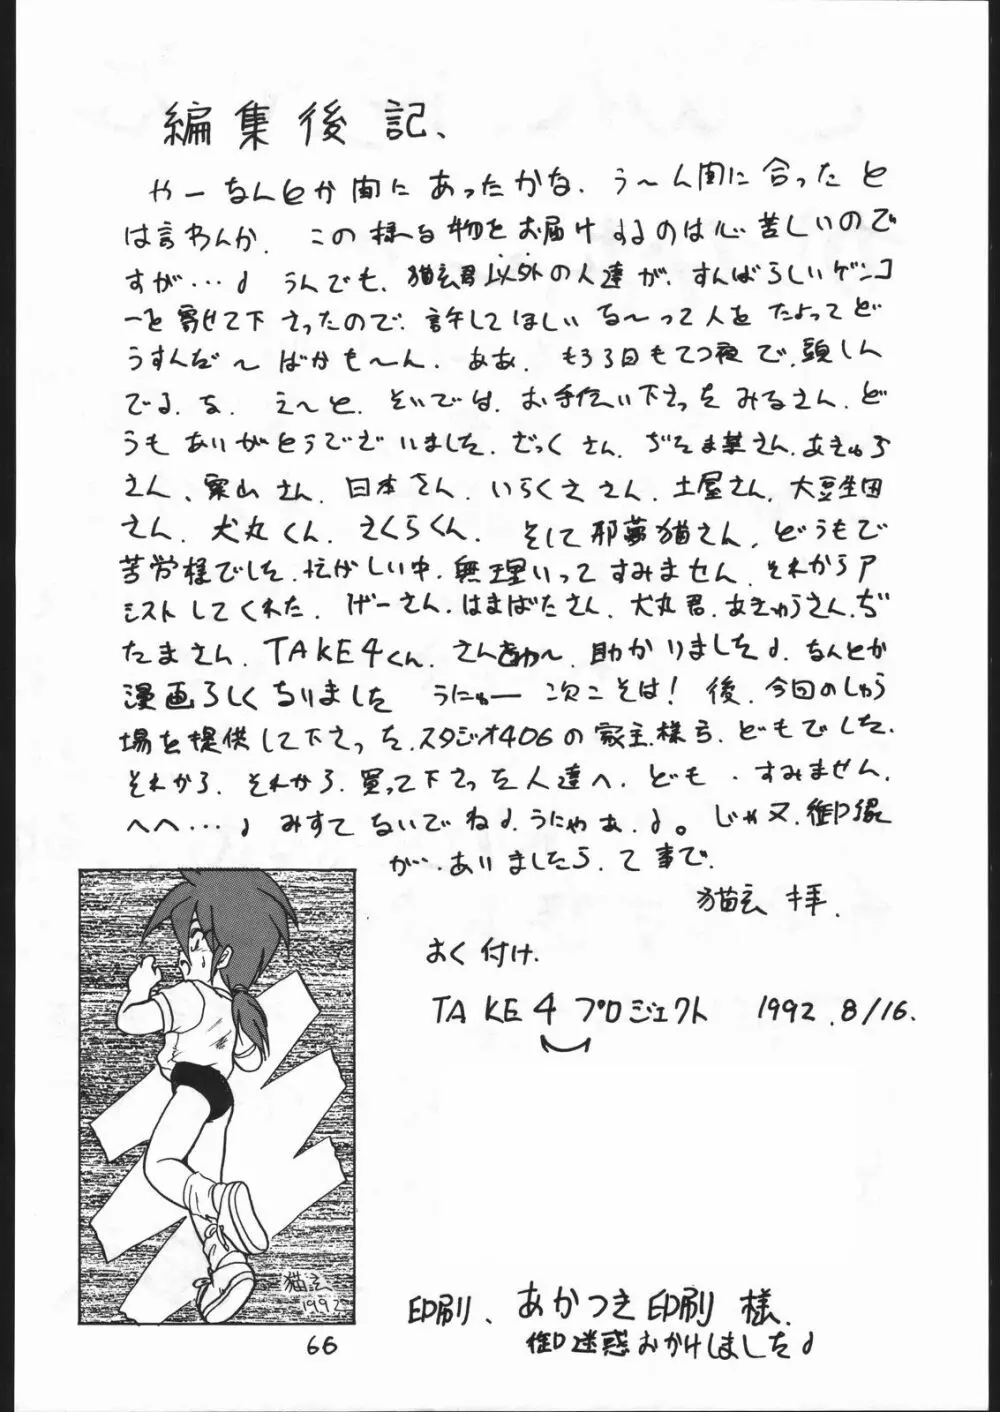 編集後記、
やーなんとか間にあったかな、う〜ん間に合ったと
は言わんか、この様な物をお届けするのは心苦しいので
すが…♩うんでも、猫玄君以外の人達が、すんばらしいゲンコ
ーを寄せて下さったので、許してほしいな〜って人をたよってど
うすんだ〜ばかも〜ん、ああ、もう3日もてつ夜で、頭しん
でるな、え〜と、ぞいでは、お手伝い下さったみなさん、ど
うもありがとうでございました、ざっくさん、ぢたま某さん、あきゅう
さん、栗山さん、日本さん、いらくささん、土屋さん、大豆生田
さん、犬丸くん、さくらくん、そして邪夢猫さん、どうもで
苦労様でした、忙がしい中、無理いってすみません、それからア
シストしてくれた、げーさん、はまばたさん、犬丸君、あきゅうさん、ぢ
たまさん、TAKE4くん、さんきゅ〜、助かりました♩、なんとか
漫画らしくなりました うにゅー 次こそは！後、今回のしゅら
場を提供して下さった、スタジオ406の家主様も、どもでした、
それから、それから、買って下さった人達へ、ども、すみません、
へへ…♩みすてないでね♩、うにゃぁ、♩。じゃ又、御縁
が…ありましたら、て事で、
猫玄 拝、
おく付け、
TAKE4プロジェクト 1992.8/16.
猫玄
1992
印刷、あかつき印刷 様、
御迷惑おかけしました♩
66